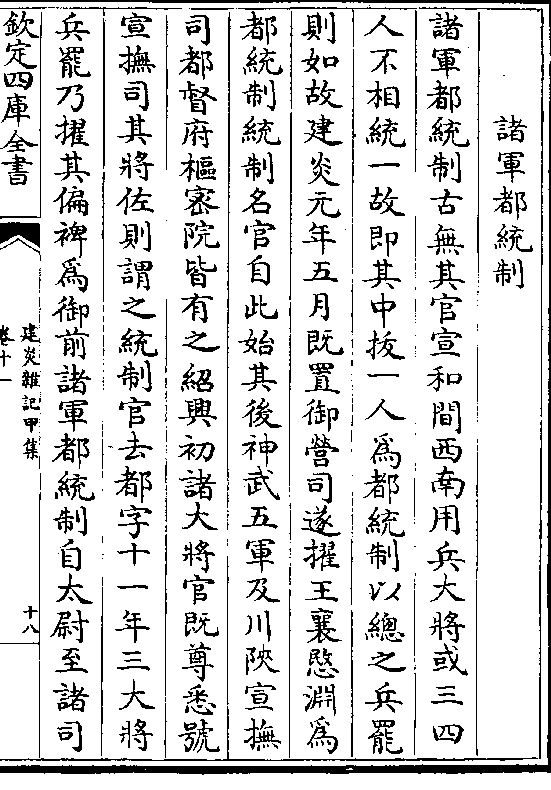 諸軍都統制
諸軍都統制古無其官宣和間西南用兵大將或三四
人不相統一故即其中拔一人為都統制以總之兵罷
則如故建炎元年五月既置御營司遂擢王襄愍淵為
都統制統制名官自此始其後神武五軍及川陜宣撫
司都督府樞密院皆有之紹興初諸大將官既尊悉號
宣撫司其將佐則謂之統制官去都字十一年三大將
兵罷乃擢其偏裨為御前諸軍都統制自太尉至諸司
欽定四庫全書
建炎雜記甲集
卷十一
十八